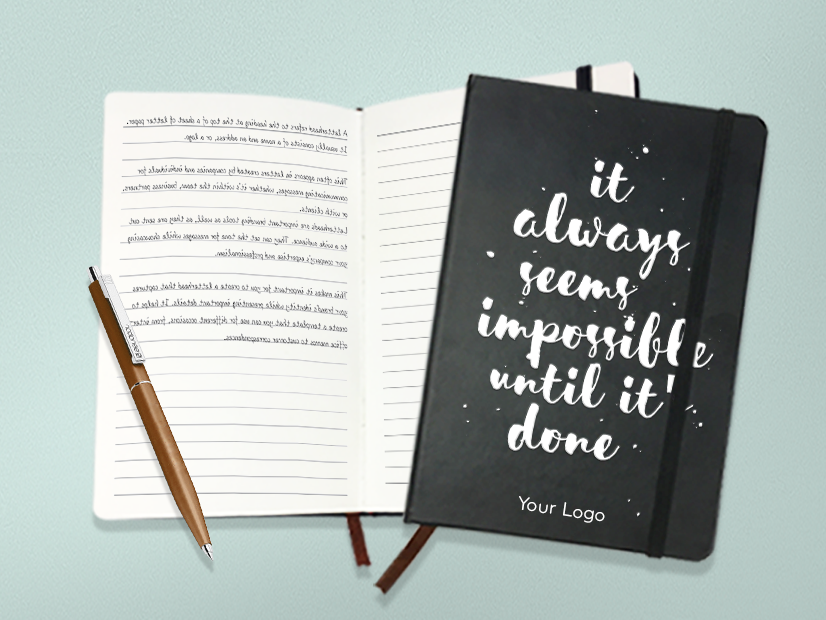 A letterhead refers to the heading at the top of a sheet of letter paper.
It usually consists of a name and an address, or a logo.
This often appears in letters created by companies and individuals for
communicating messages, whether it's within the team, business partners,
or with clients.
Letterheads are important branding tools as well, as they are sent out
to a wide audience. They can set the tone for messages while showcasing
your company's expertise and professionalism.
This makes it important for you to create a letterhead that captures
your brand's identity while presenting important details. It helps to
create a template that you can use for different occasions, from inter-
office memos to customer correspondence.
it
always
seems
impossible
until it'
done
Your Logo